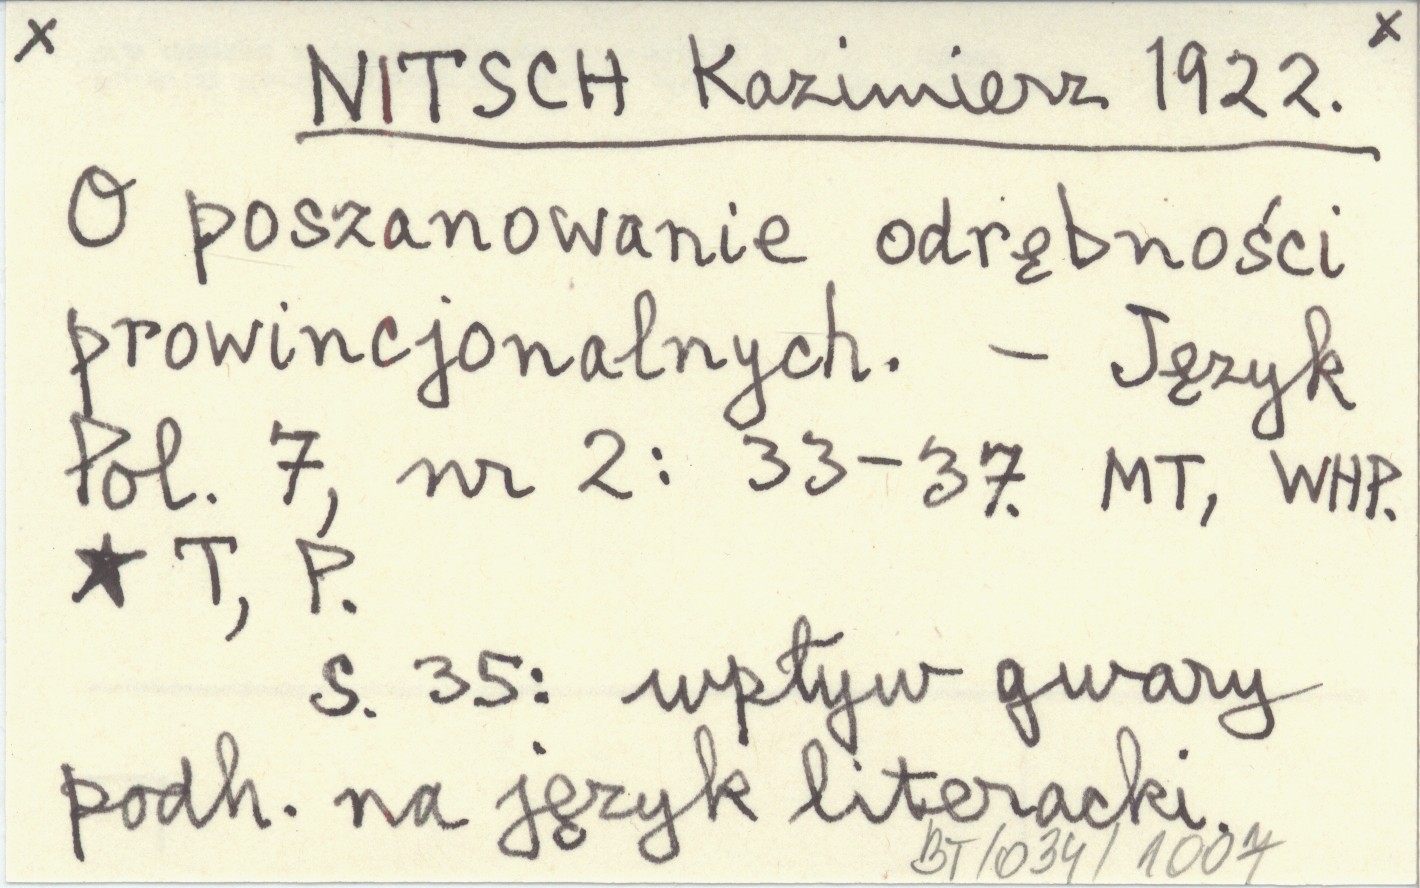 x x
NITSCH Kazimierz 1922.
O poszanowanie odrębności
prowincjonalnych. – Język
Pol. 7, nr 2: 33–37. MT, WHP.
★ T, P.
s. 35: wpływ gwary
podh. na język literacki.
BT/034/1007